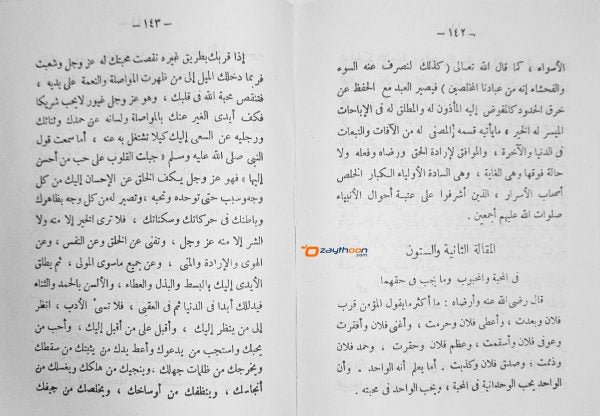 — ١٤٢ —
الأسواء، كما قال الله تعالى (كذلك لنصرف عنه السوء
والفحشاء إنه من عبادنا المخلصين) فيصير العبد مع الحفظ عن
خرق الحدود كالمفوض إليه المأذون له والمطلق له فى الإباحات
الميسر له الخير، ما يأتيه قسمه المصفى له من الآفات والتبعات
فى الدنيا والآخرة، والموافق لإرادة الحق ورضاه وفعله ولا
حالة فوقها وهى الغاية، وهى السادة الأولياء الكبار الخلص
أصحاب الأسرار، الذين أشرفوا على عتبة أحوال الأنبياء
صلوات الله عليهم أجمعين.
المقالة الثانية والستون
فى المحبة والمحبوب وما يجب فى حقهما
قال رضى الله عنه وأرضاه: ما أكثر ما يقول المؤمن قرب
فلان وبعدت، وأعطى فلان وحرمت، وأغنى فلان وأفقرت
وعوفى فلان وأسقمت، وعظم فلان وحقرت، وحمد فلان
وذممت؛ وصدق فلان وكذبت. أما يعلم أنه الواحد. وأن
الواحد يحب الوحدانية فى المحبة، ويحب الواحد فى محبته.
— ١٤٣ —
إذا قربك بطريق غيره نقصت محبتك له عز وجل وشعبت
فربما دخلك الميل إلى من ظهرت المواصلة والنعمة على يديه،
فتنقص محبة الله فى قلبك، وهو عز وجل غيور لا يحب شريكا
فكف أيدى الغير عنك بالمواصلة ولسانه عن حمدك وثنائك
ورجليه عن السعى إليك كيلا تشتغل به عنه، أما سمعت قول
النبى صلى الله عليه وسلم «جبلت القلوب على حب من أحسن
إليها» فهو عز وجل يكف الخلق عن الإحسان إليك من كل
وجه وسبب حتى توحده وتحبه، وتصير له من كل وجه بظاهرك
وباطنك فى حركاتك وسكناتك، فلا ترى الخير إلا منه ولا
الشر إلا منه عز وجل، وتفنى عن الخلق وعن النفس، وعن
الهوى والإرادة والمنى، وعن جميع ماسوى المولى، ثم يطلق
الأيدى إليك بالبسط والبذل والعطاء، والألسن بالحمد والثناء
فيدللك أبدا فى الدنيا ثم فى العقبى، فلا تسىء الأدب، انظر
إلى من ينظر إليك، وأقبل على من أقبل إليك، وأحب من
يحبك واستجب من يدعوك وأعط يدك من يثبتك من سقطك
ويخرجك من ظلمات جهلك. وينجيك من هلكك ويغسلك من
أنجاسك، وينظفك من أوساخك، ويخلصك من جيفك
zaythoon
.com